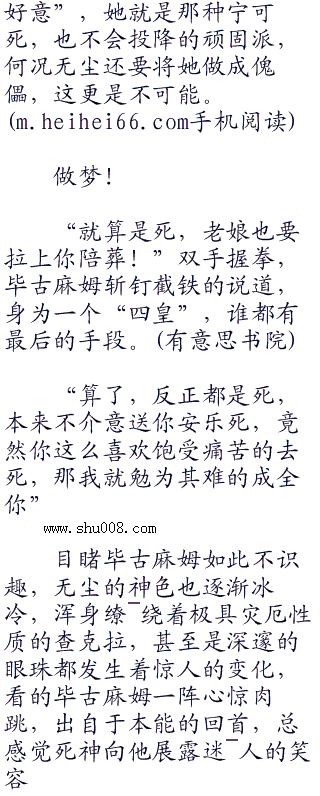 好意”，她就是那种宁可
死，也不会投降的顽固派，
何况无尘还要将她做成傀
儡，这更是不可能。
(m.heihei66.com手机阅读)
做梦！
“就算是死，老娘也要
拉上你陪葬！”双手握拳，
毕古麻姆斩钉截铁的说道，
身为一个“四皇”，谁都有
最后的手段。(有意思书院)
“算了，反正都是死，
本来不介意送你安乐死，竟
然你这么喜欢饱受痛苦的去
死，那我就勉为其难的成全
你”
www.shu008.com
目睹毕古麻姆如此不识
趣，无尘的神色也逐渐冰
冷，浑身缭¯绕着极具灾厄性
质的查克拉，甚至是深邃的
眼珠都发生着惊人的变化，
看的毕古麻姆一阵心惊肉
跳，出自于本能的回首，总
感觉死神向他展露迷¯人的笑
容